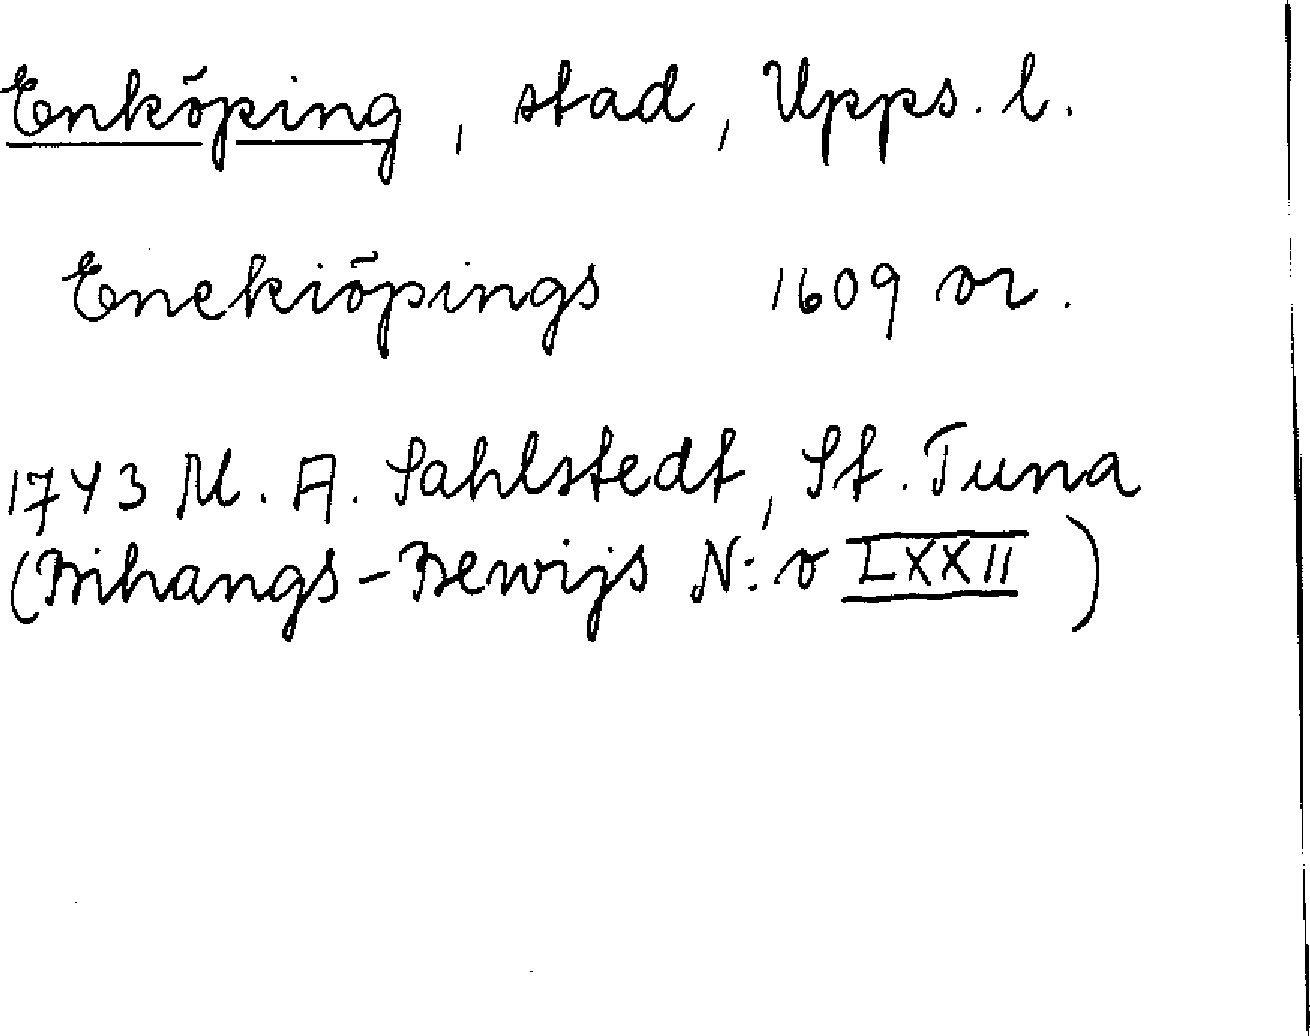 Enköping, stad, Upps. l.
Enekiöpings 1609 or.
1743 M. A. Sahlstedt, St. Tuna
(Bihangs-Bewijs N:o LXXII)